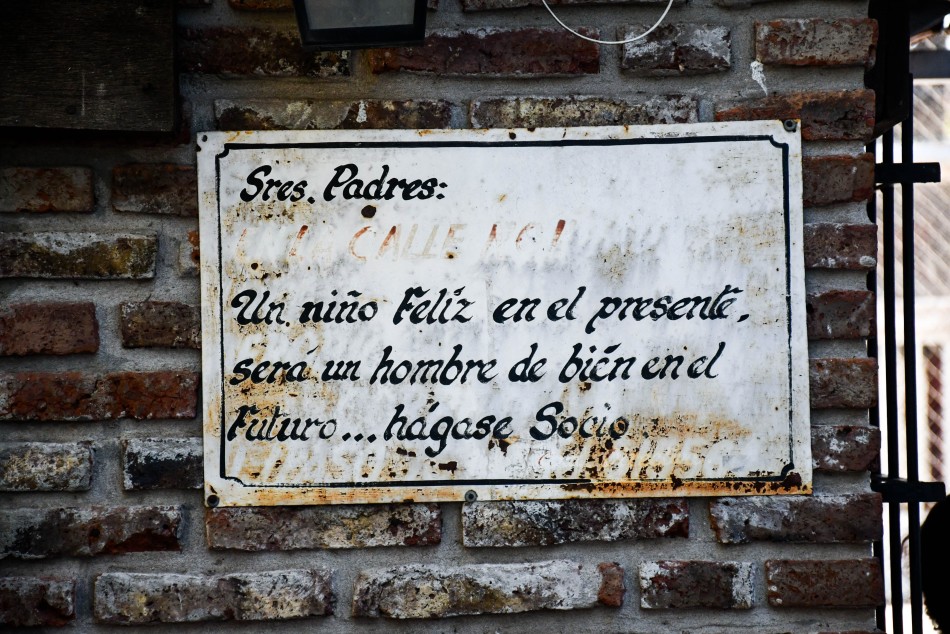 Sres. Padres:
LA CALLE NO!
Un niño Feliz en el presente,
será un hombre de bién en el
Futuro... hágase Socio